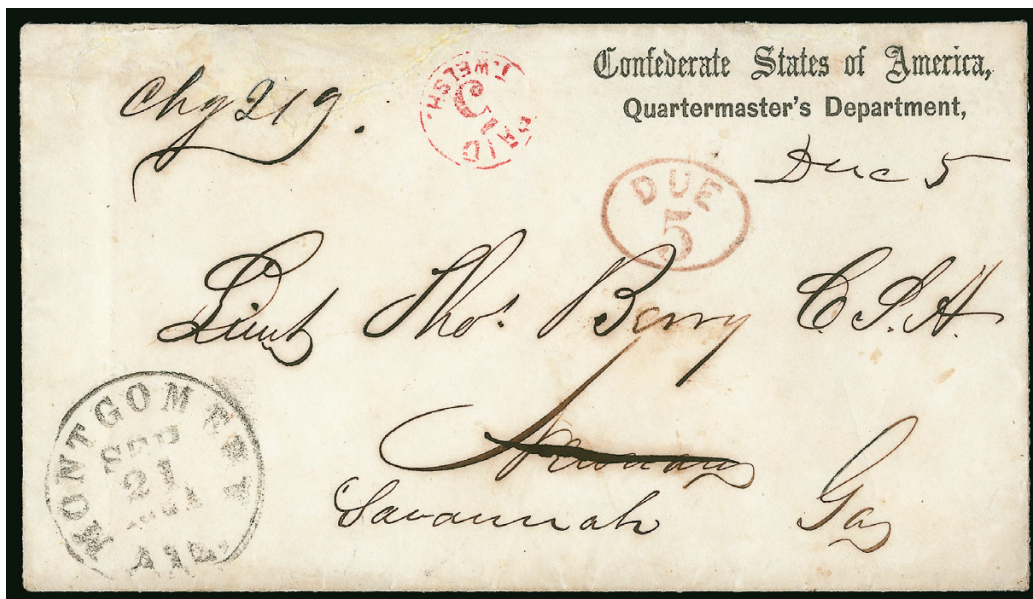 Confederate States of America,
Quartermaster's Department,
Chg 219.
PAID
5
I. WELSH.
Due 5
DUE
5
Lieut Thos. Berry C.S.A.
Newnan
Savannah Ga
MONTGOMERY
SEP
21
1861
ALA.